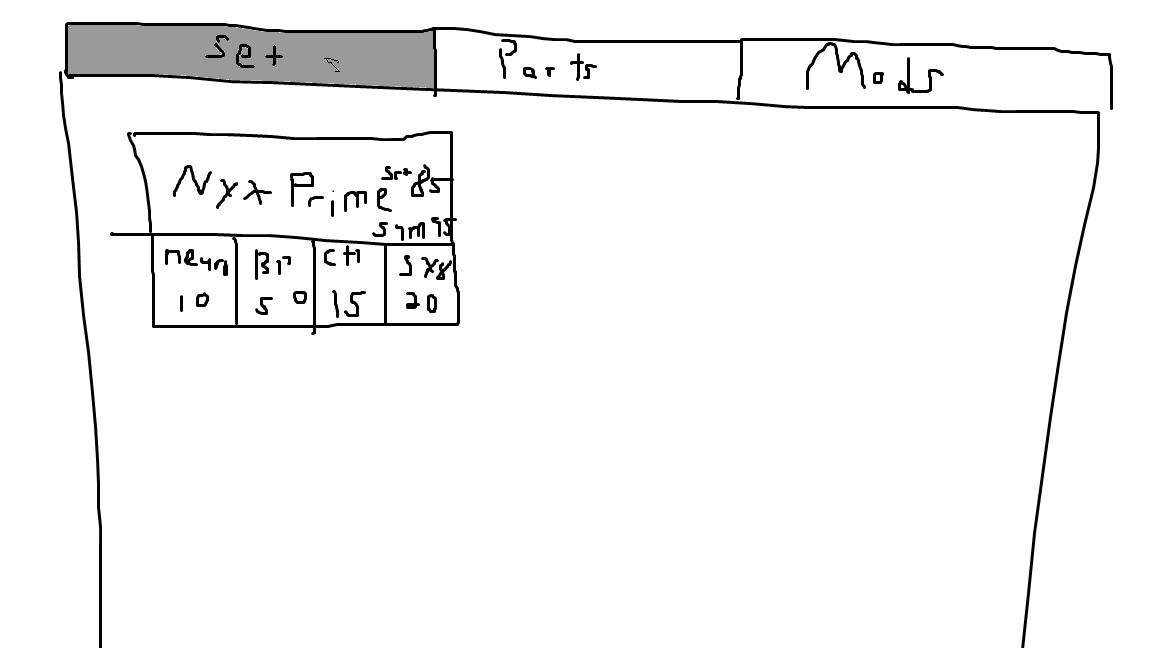 Set Parts Mods
Nyx Prime Set 85
Sum 95
neuro Bp Ch Sys
10 50 15 20